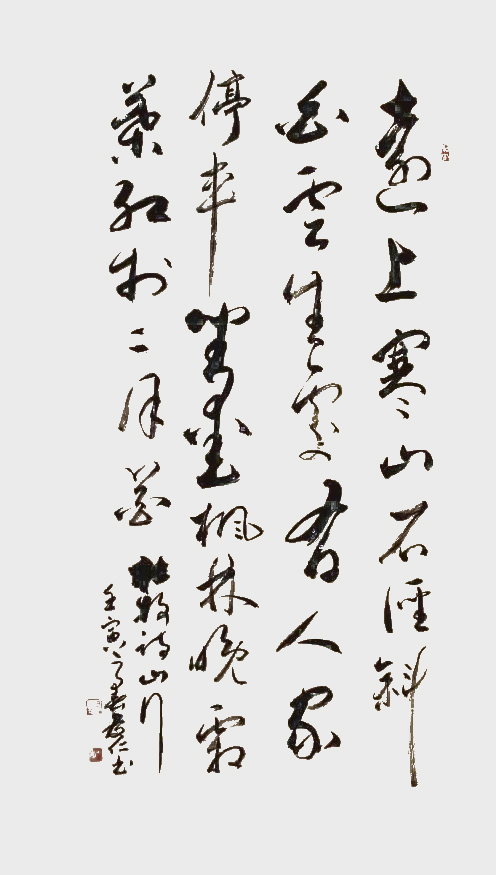 遠上寒山石徑斜
白雲生處有人家
停車坐愛楓林晚霜
葉紅於二月花
杜牧詩山行
壬寅 仁书